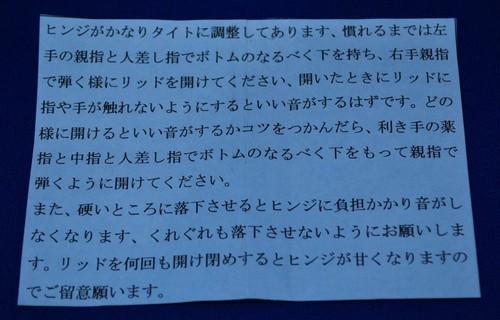 ヒンジがかなりタイトに調整してあります、慣れるまでは左
手の親指と人差し指でボトムのなるべく下を持ち、右手親指
で弾く様にリッドを開けてください、開いたときにリッドに
指や手が触れないようにするといい音がするはずです。どの
様に開けるといい音がするかコツをつかんだら、利き手の薬
指と中指と人差し指でボトムのなるべく下をもって親指で
弾くように開けてください。
また、硬いところに落下させるとヒンジに負担かかり音がし
なくなります、くれぐれも落下させないようにお願いしま
す。リッドを何回も開け閉めするとヒンジが甘くなりますの
でご留意願います。